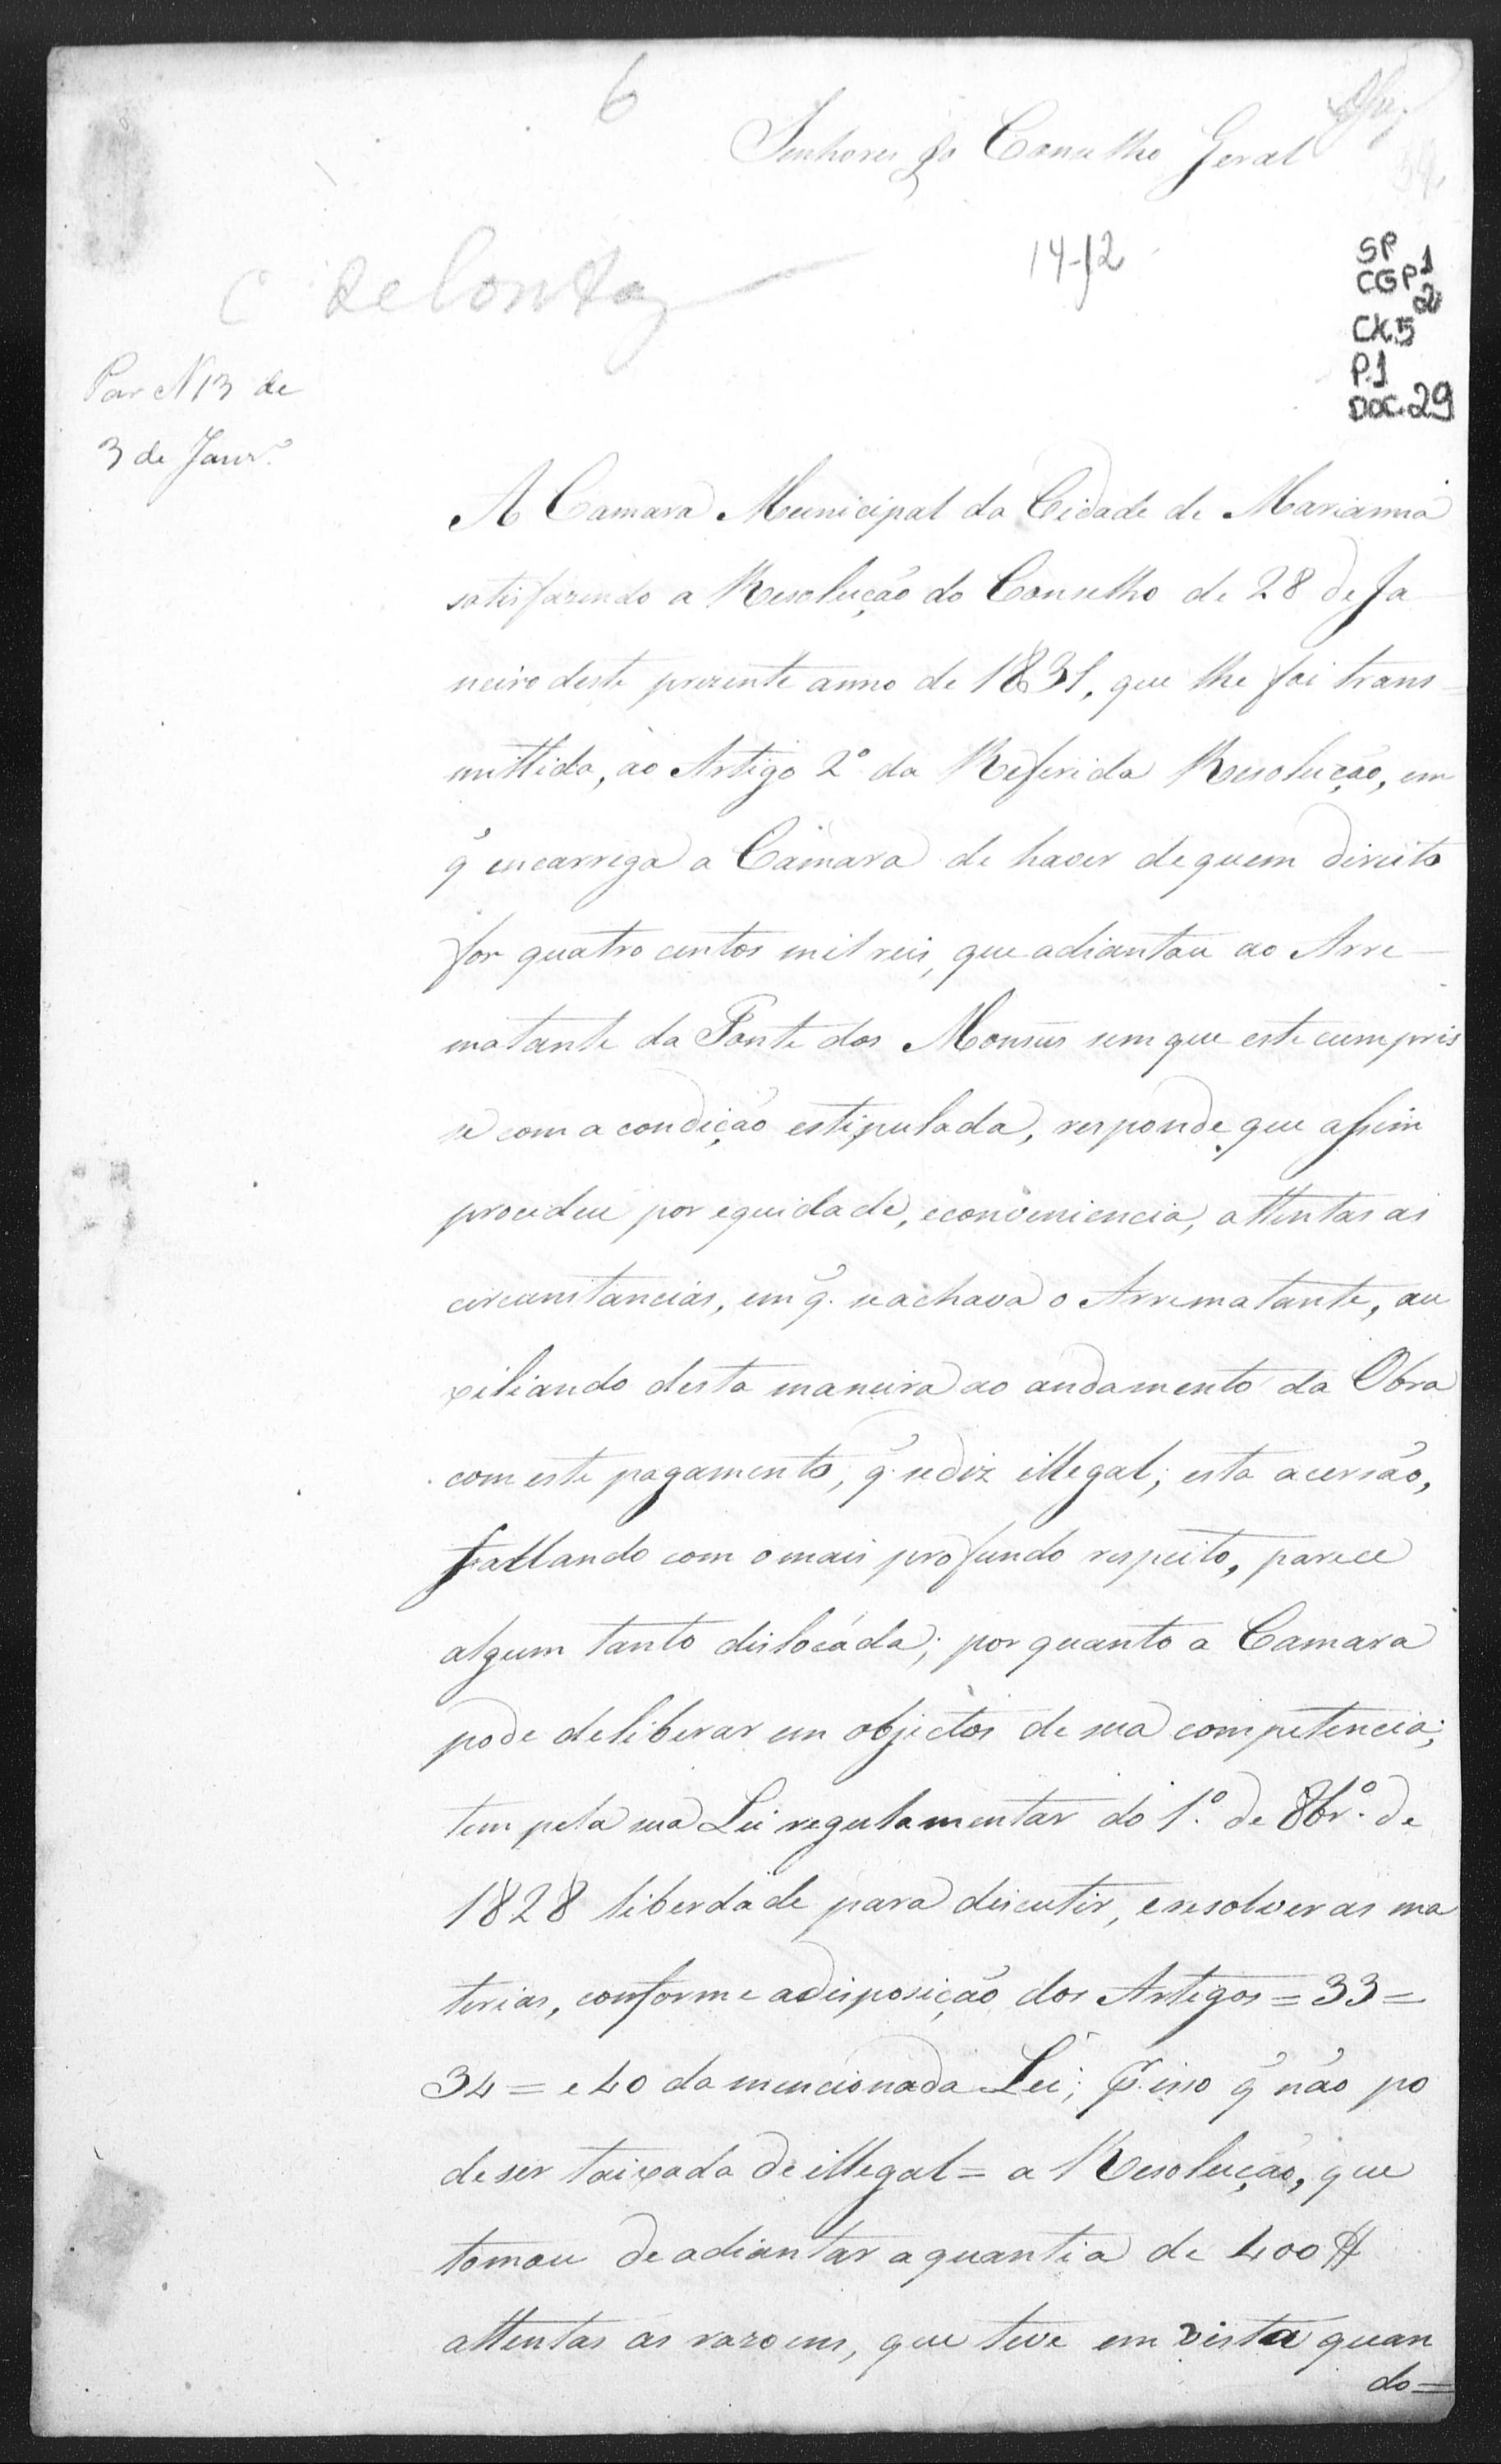 6
Senhores do Conselho Geral
14-12
C de Contas
SP
CGP1
2
CX.5
P.1
DOC.29
Par N 13 de
3 de Janrº
A Camara Municipal da Cidade de Marianna
satisfazendo a Resolução do Conselho de 28 de Ja
neiro deste prezente anno de 1831, que lhe foi trans=
mittida, ao Artigo 2º da Referida Resolução, em
q̃ encarrega a Câmara de haver dequem direito
for quatro centos mil reis, que adiantou ao Arre-
matante da Ponte dos Monsus sem que este cumpris
se com a condição estipulada, responde que assim
procedeu por equidade, econveniencia, attentas as
circunstancias, em q̃. se achava o Arrematante, au
xiliando desta maneira ao andamento da Obra
com este pagamento, q̃ se diz illegal; esta acersão,
fallando com o mais profundo respeito, parece
algum tanto dislocáda; por quanto a Camara
pode deliberar em objectos de sua competencia;
tem pela sua Lei regulamentar do 1º. de 8brº. de
1828 liberdade para discutir, eresolver as ma
terias, conforme adisposição dos Artigos = 33 =
34 = e 40 da mencionada Lei; p. isso q̃ não po
de ser taixada de illegal = a Resolução, que
tomou de adiantar a quantia de 400$
attentas as razoens, que teve em vista quan
do =